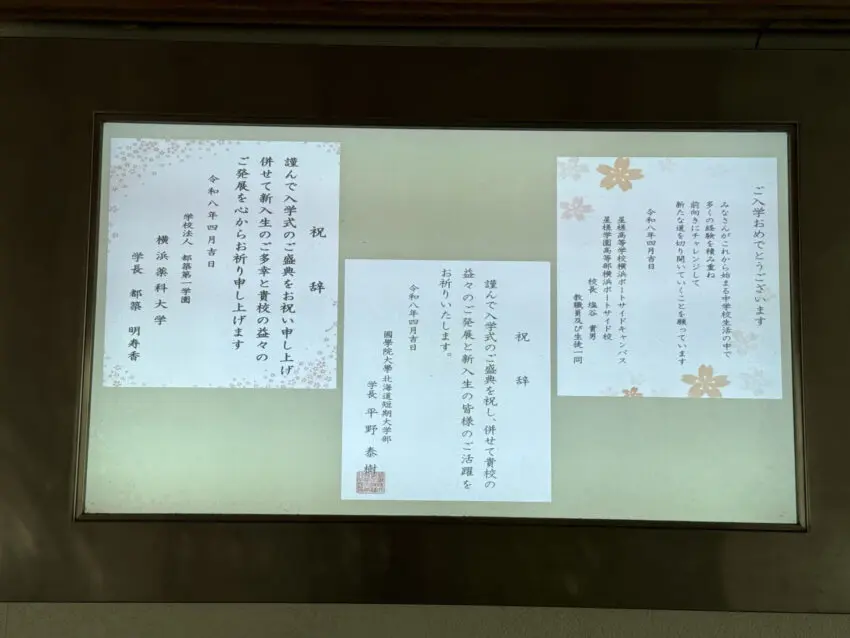 祝辞
謹んで入学式のご盛典をお祝い申し上げ
併せて新入生のご多幸と貴校の益々の
ご発展を心からお祈り申し上げます
令和八年四月吉日
学校法人 都築第一学園
横浜薬科大学
学長 都築 明寿香
祝辞
謹んで入学式のご盛典を祝し、併せて貴校の
益々のご発展と新入生の皆様のご活躍を
お祈りいたします。
令和八年四月吉日
國學院大學北海道短期大学部
学長 平野 泰樹
ご入学おめでとうございます
みなさんがこれから始まる中学校生活の中で
多くの経験を積み重ね
前向きにチャレンジして
新たな道を切り開いていくことを願っています
令和八年四月吉日
星槎高等学校横浜ポートサイドキャンパス
星槎学園高等部横浜ポートサイド校
校長 塩谷 貴男
教職員及び生徒一同